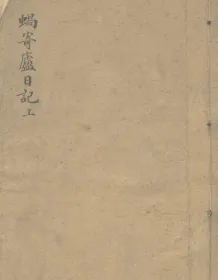 蝸寄廬日記上